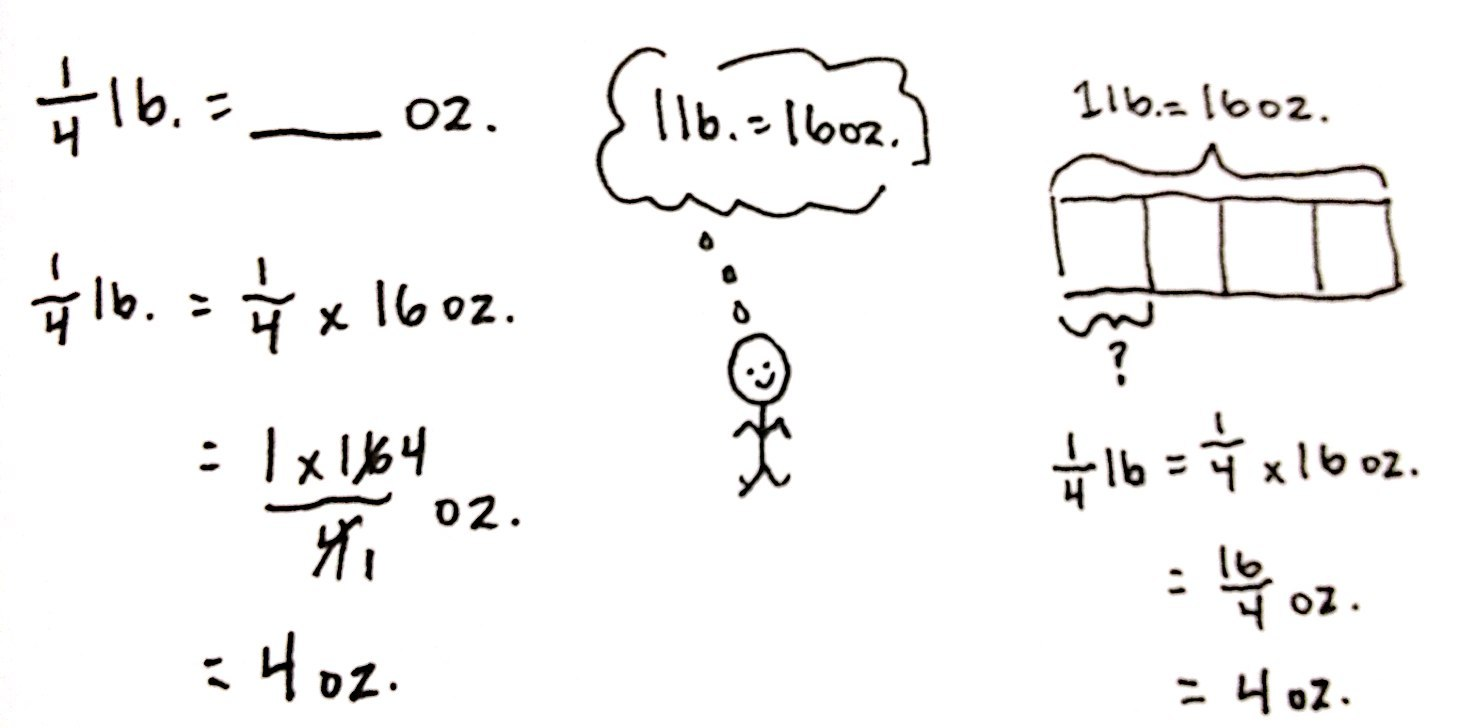 1/4 lb. = ___ oz.
1/4 lb. = 1/4 x 16 oz.
= 1 x 16 4 / 4 1 oz.
= 4 oz.
1 lb. = 16 oz.
1 lb. = 16 oz.
?
1/4 lb = 1/4 x 16 oz.
= 16/4 oz.
= 4 oz.